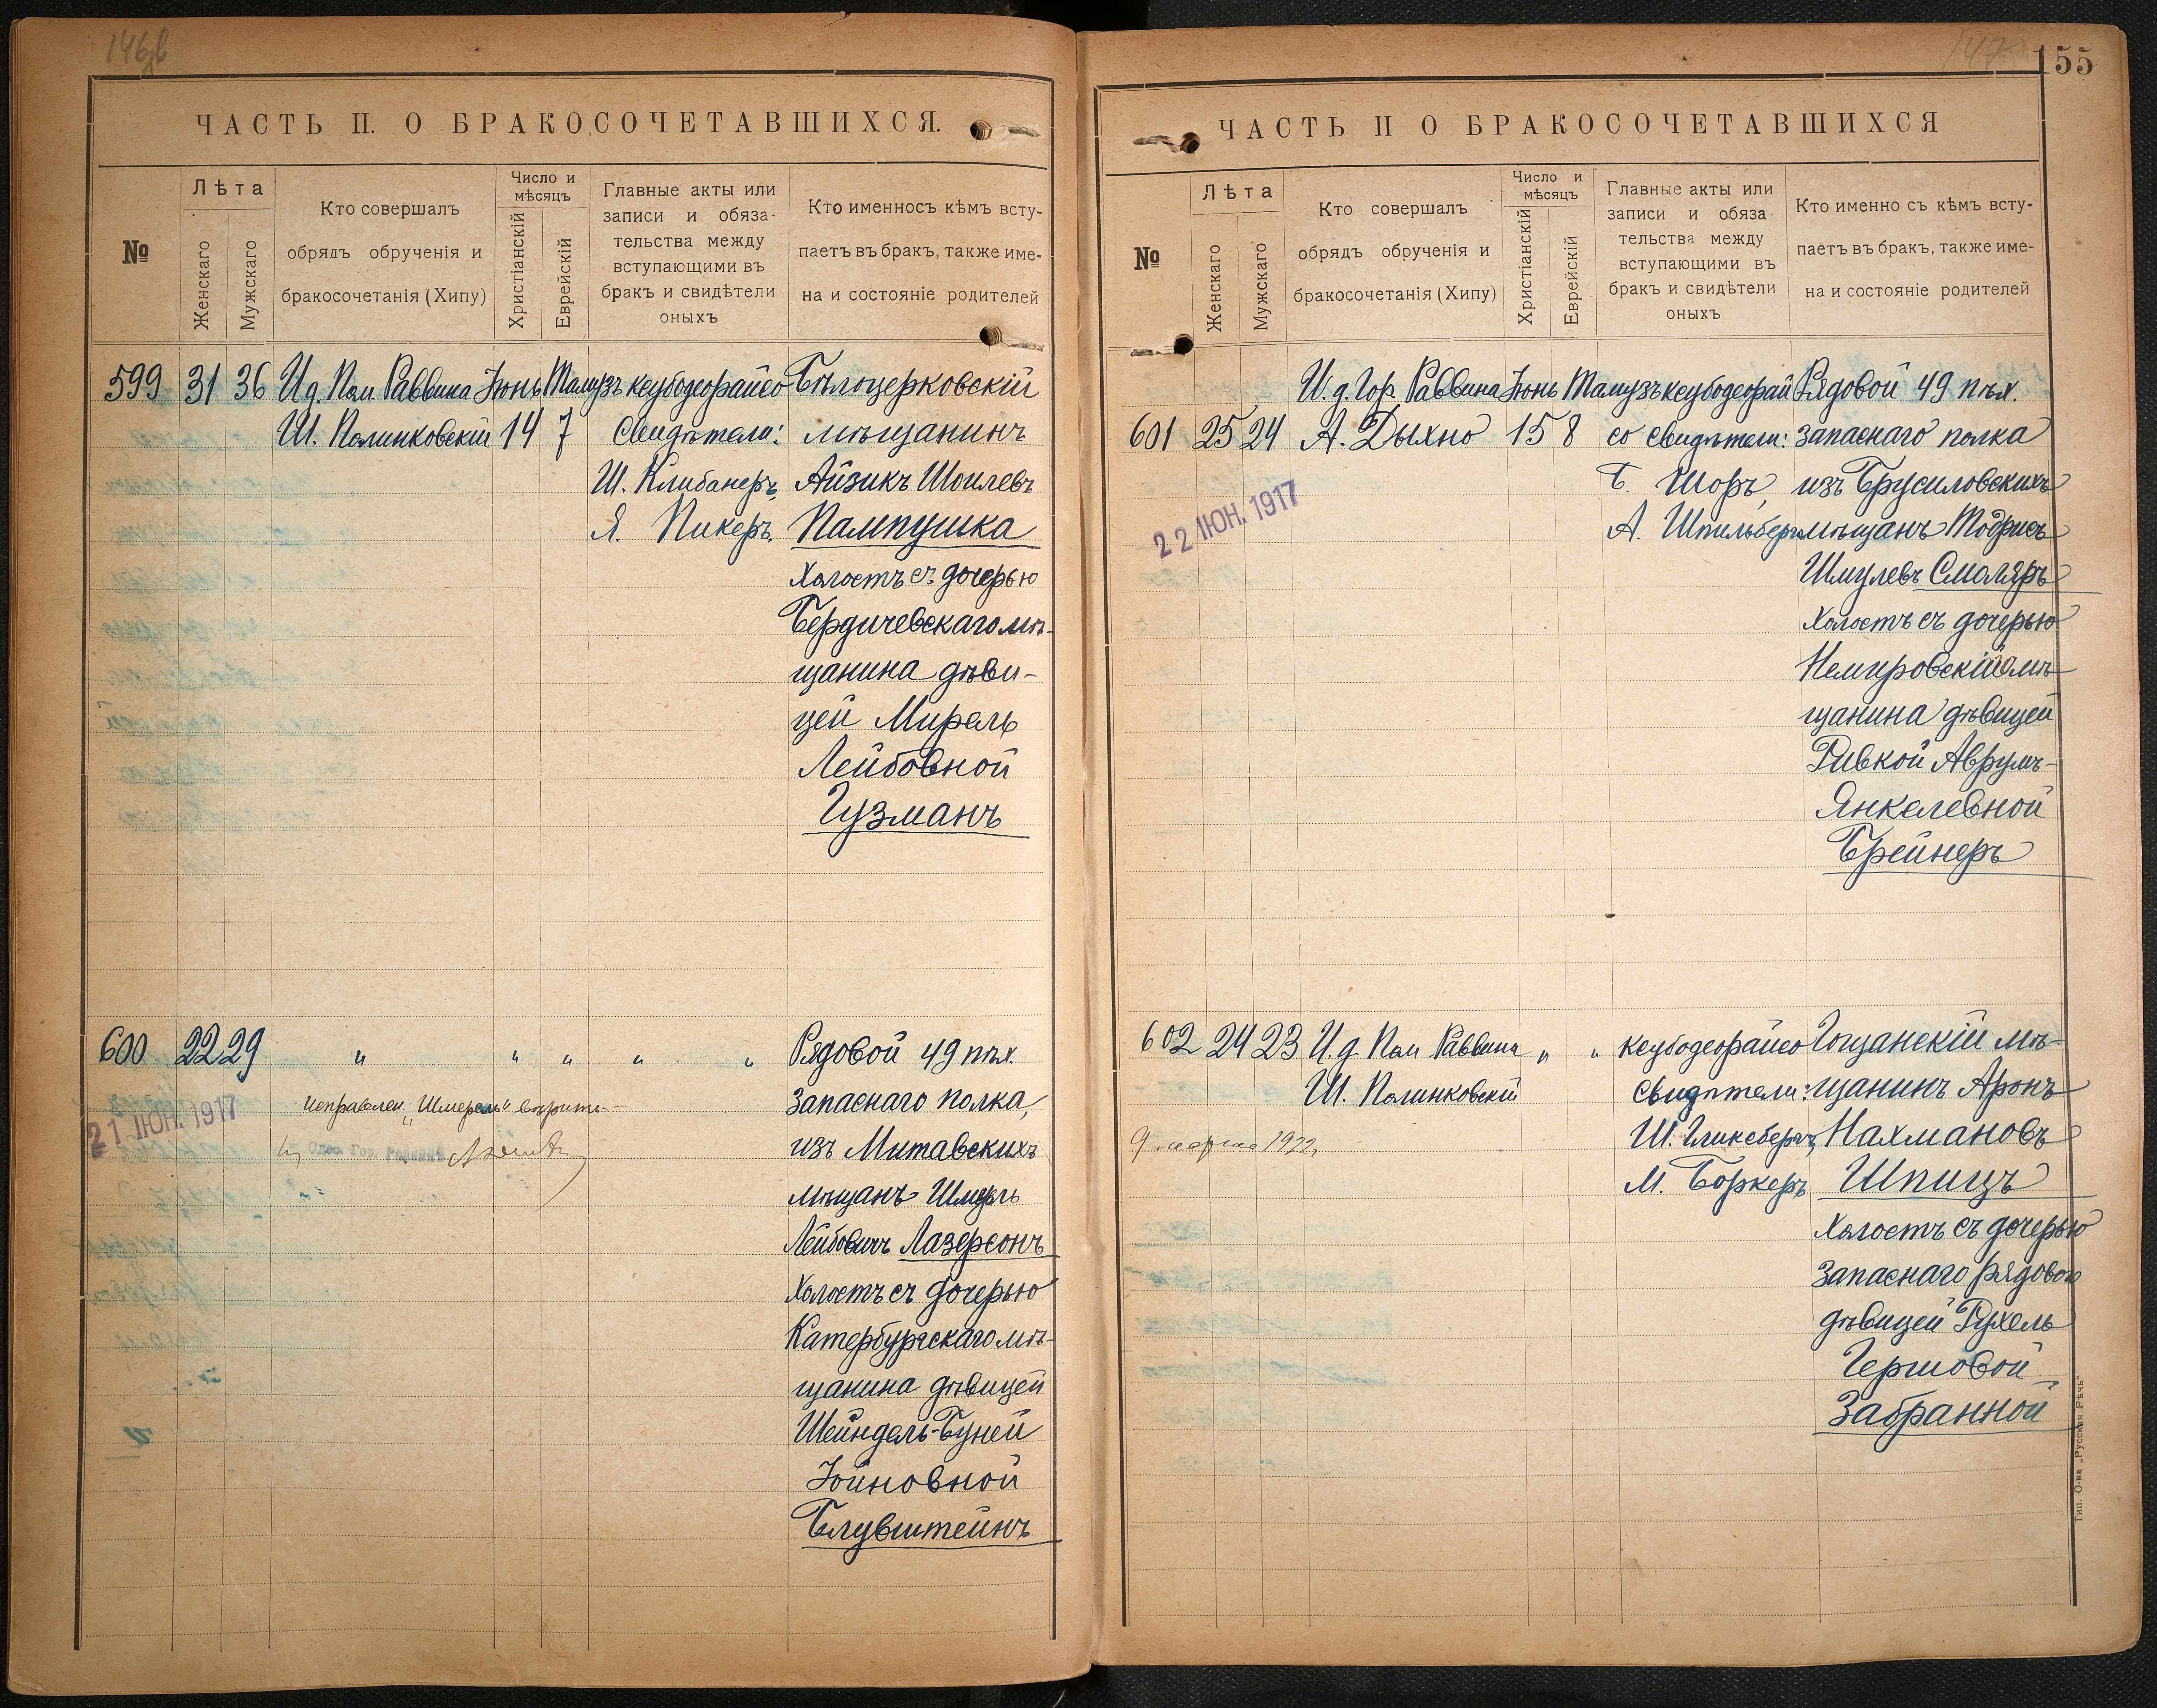 146об
ЧАСТЬ II. О БРАКОСОЧЕТАВШИХСЯ.
№
Лѣта
Женскаго
Мужскаго
Кто совершалъ
обрядъ обрученія и
бракосочетанія (Хипу)
Число и
мѣсяцъ
Христіанскій
Еврейскій
Главные акты или
записи и обяза-
тельства между
вступающими въ
бракъ и свидѣтели
оныхъ
Кто именносъ кѣмъ всту-
паетъ въ бракъ, также име-
на и состояніе родителей
599 31 36 И.д. Пом. Раввина Іюнь Тамузъ ксубодеорайсо Бѣлоцерковскій
Ш. Полинковскій 14 7 Свидѣтели: мѣщанинъ
Ш. Клибанеръ, Айзикъ Шоилевъ
Я. Пикеръ. Пампушка
Холостъ съ дочерью
Бердичевскаго мѣ-
щанина дѣви-
цей Мирель
Лейбовной
Гузманъ
600 22 29 " " " " " Рядовой 49 пѣх.
запаснаго полка,
изъ Митавскихъ
мѣщанъ Шмерль
Лейбовичъ Лазерсонъ
Холостъ съ дочерью
Катербургскаго мѣ-
щанина дѣвицей
Шейндель-Буней
Іойновной
Блувштейнъ
21 ІЮН. 1917
147
155
ЧАСТЬ II О БРАКОСОЧЕТАВШИХСЯ
№
Лѣта
Женскаго
Мужскаго
Кто совершалъ
обрядъ обрученія и
бракосочетанія (Хипу)
Число и
мѣсяцъ
Христіанскій
Еврейскій
Главные акты или
записи и обяза
тельства между
вступающими въ
бракъ и свидѣтели
оныхъ
Кто именно съ кѣмъ всту-
паетъ въ бракъ, также име-
на и состояніе родителей
И.д. Гор. Раввина Іюнь Тамузъ ксубодеорай Рядовой 49 пѣх.
601 25 24 А. Дыхно 15 8 со свидѣтели: запаснаго полка
Б. Шоръ, изъ Брусиловскихъ
А. Шпильбергъ мѣщанъ Тодрисъ
Шмулевъ Смоляръ
Холостъ съ дочерью
Немировскаго мѣ-
щанина дѣвицей
Ривкой Аврумъ-
Янкелевной
Брейнеръ
22 ІЮН. 1917
602 24 23 И.д. Пом. Раввина " " ксубодеорайсо Гощанскій мѣ-
Ш. Полинковскій Свидѣтели: щанинъ Аронъ
Ш. Гликсбергъ, Нахмановъ
М. Боркеръ Шпицъ
Холостъ съ дочерью
запаснаго рядового
дѣвицей Рухель
Гершовой
Забранной
9 марта 1922.
Тип. О-ва „Русская Рѣчь"